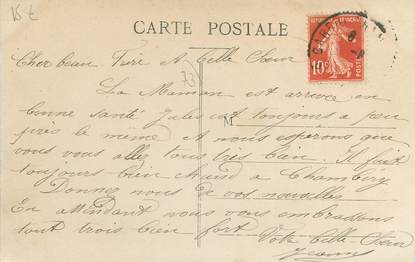 15 €
CARTE POSTALE
Cher beau. Frère et Belle Sœur
73
10c
POSTES
La Maman est arrivée en
bonne santé Jules est toujours a peu
M
près le même et nous esperons que
vous vous allez tous très bien. Il fait
toujours bien chaud a Chambéry
Donnez nous de vos nouvelles
En attendant nous vous embrassons
tout trois bien fort Votre Belle-Sœur
Jeanne